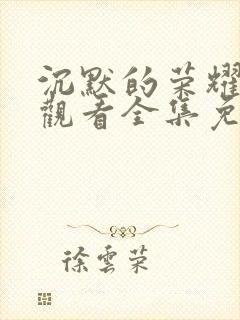 沉默的荣耀
觀看全集免
徐雲荣